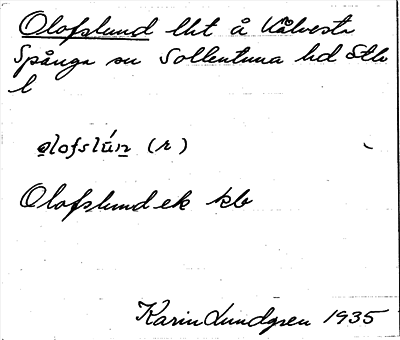 Olofslund lht å Kälvesta
Spånga sn Sollentuna hd Sthlm
l
olofslún (r)
Olofslund ek kb
Karin Lundgren 1935